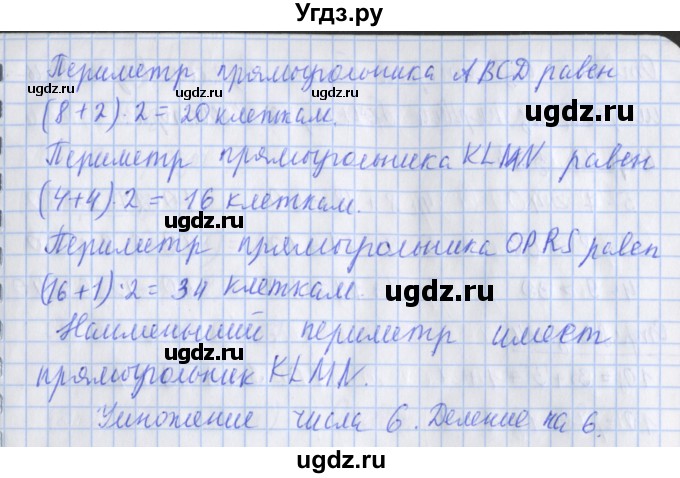 Угдз.ру
Периметр прямоугольника ABCD равен
(8+2)·2=20 клеткам.
Периметр прямоугольника KLMN равен
(4+4)·2= 16 клеткам.
Периметр прямоугольника OPRS равен
(16+1)·2= 34 клеткам.
Наименьший периметр имеет
прямоугольник KLMN.
Умножение числа 6. Деление на 6.
ugdz.ru
ugdz.ru
ugdz.ru
ugdz.ru
ugdz.ru
ugdz.ru
ugdz.ru
ugdz.ru
ugdz.ru